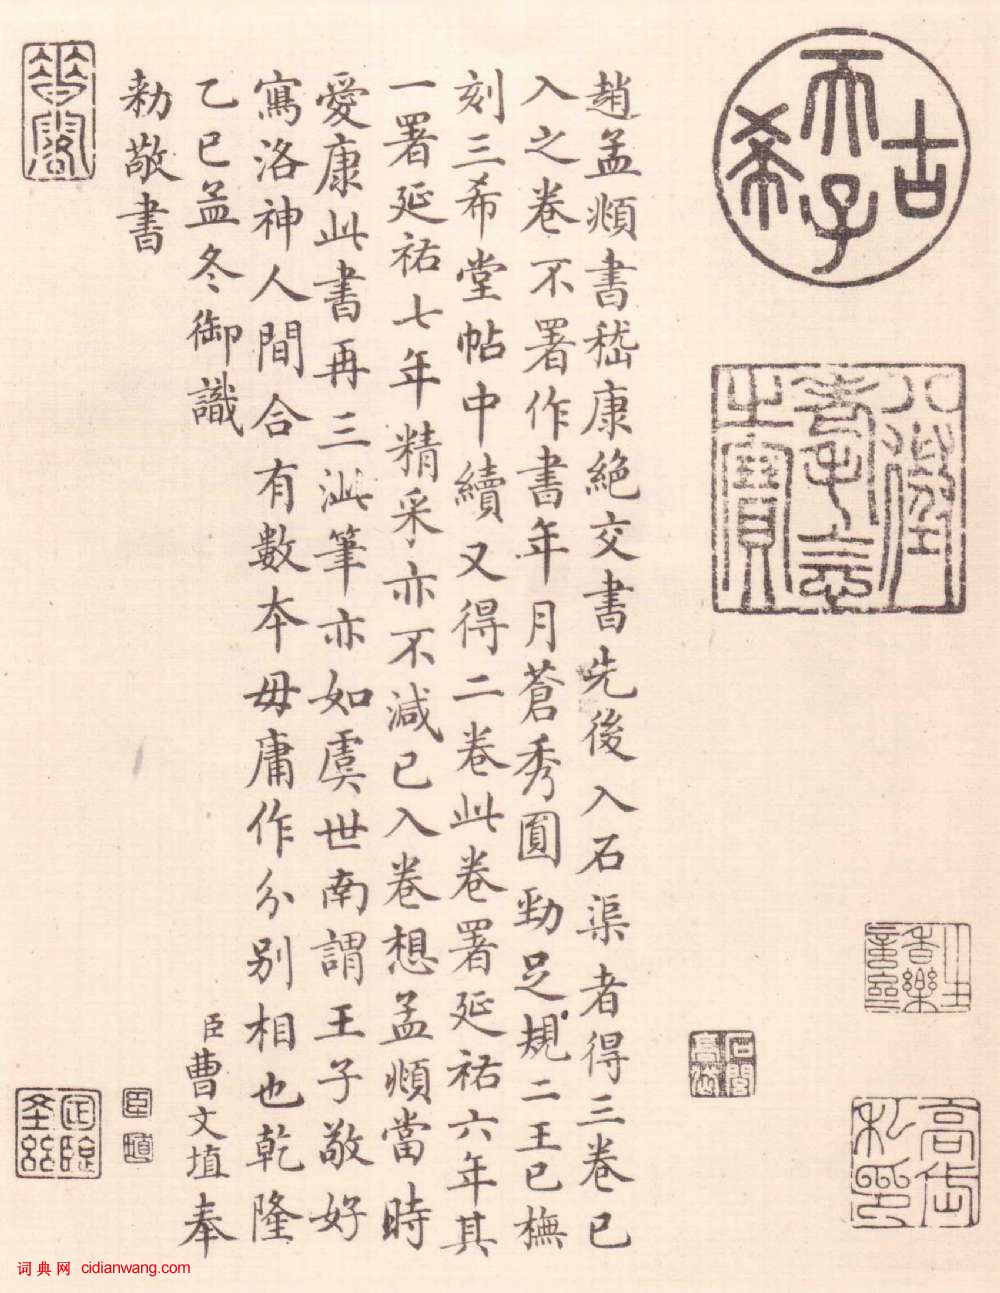 古
天子
希
八徵
耄念
之寶
趙孟頫書嵇康絶交書先後入石渠者得三卷已
入之卷不署作書年月蒼秀圓勁足規二王已橅
刻三希堂帖中續又得二卷此卷署延祐六年其
一署延祐七年精采亦不減已入卷想孟頫當時
愛康此書再三泚筆亦如虞世南謂王子敬好
寫洛神人間合有數本毋庸作分別相也乾隆
乙巳孟冬御識
臣曹文埴奉
敕敬書
高岱
私印
臣
詞典网 cidianwang.com